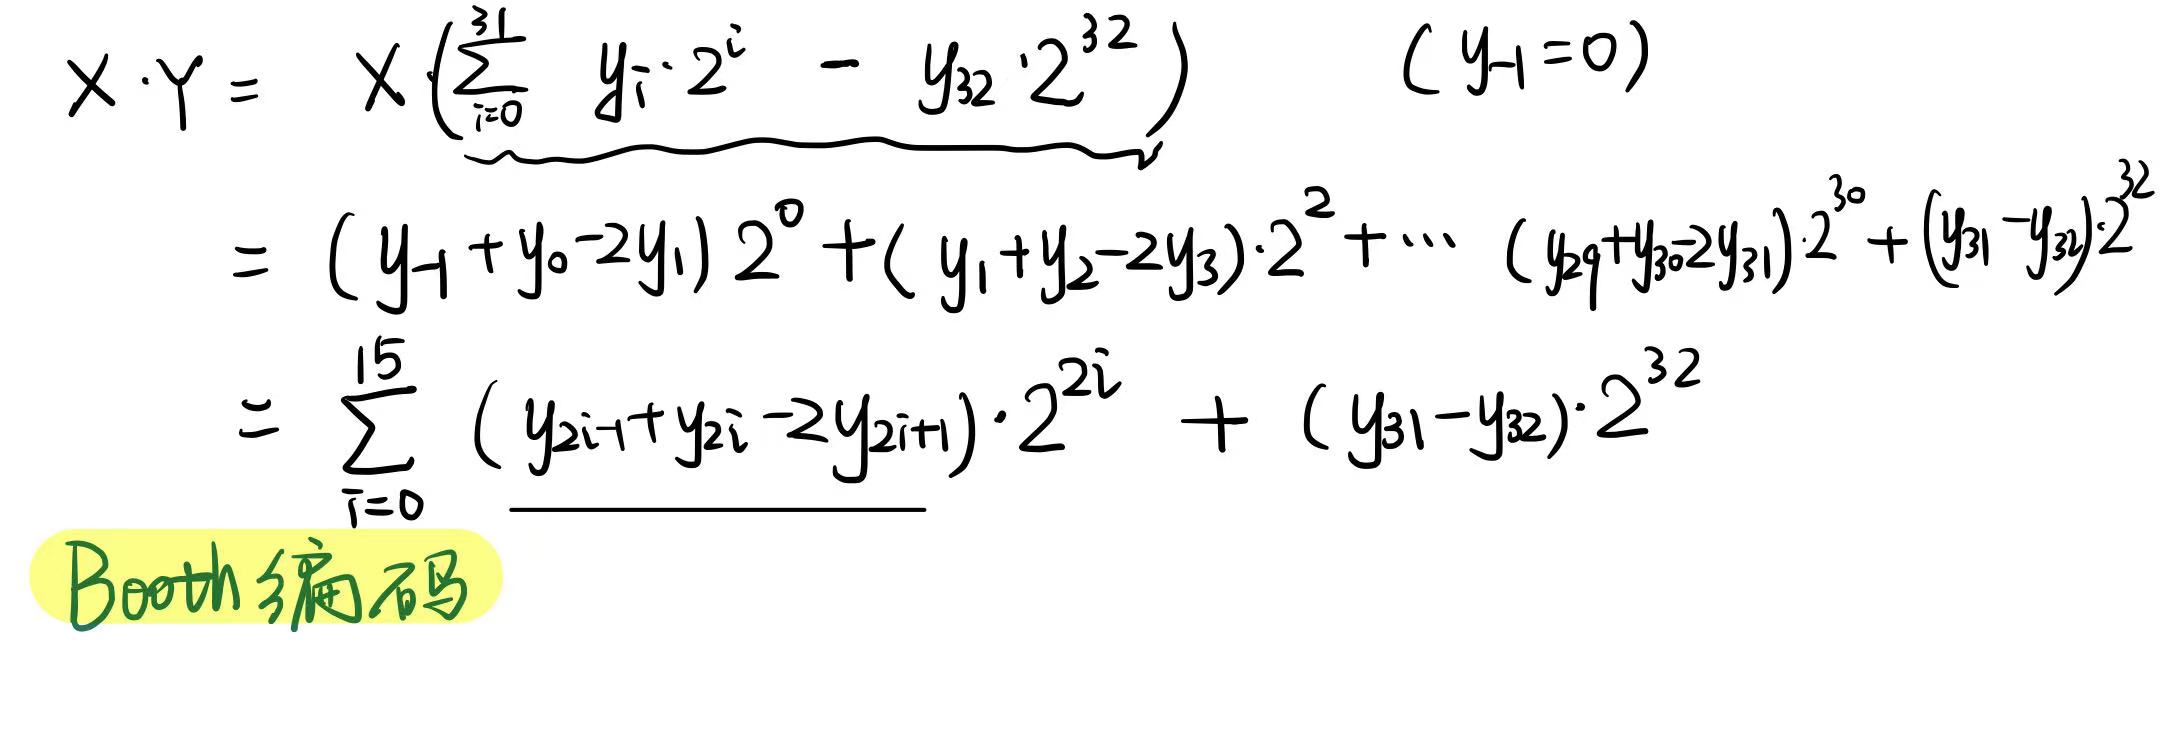 X·Y = X(∑_{i=0}^{31} y_i·2^i - y_{32}·2^{32}) (y_{-1}=0)
= (y_{-1}+y_0-2y_1)2^0+(y_1+y_2-2y_3)·2^2+··· (y_{29}+y_{30}-2y_{31})·2^{30}+(y_{31}-y_{32})·2^{32}
= ∑_{i=0}^{15} (y_{2i-1}+y_{2i}-2y_{2i+1})·2^{2i} + (y_{31}-y_{32})·2^{32}
Booth编码